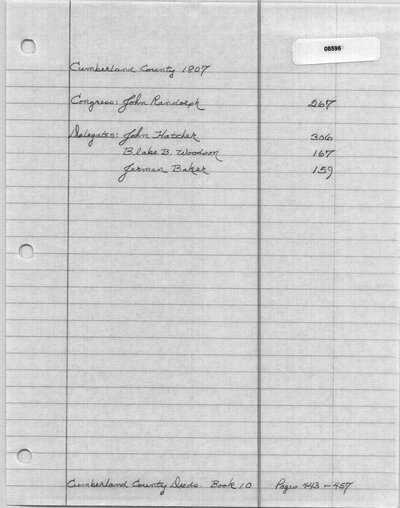 08596
Cumberland County 1807
Congress: John Randolph 267
Delegates: John Hatcher 306
Blake B. Woodson 167
Jerman Baker 159
Cumberland County Deeds. Book 10 Pages 443 - 457